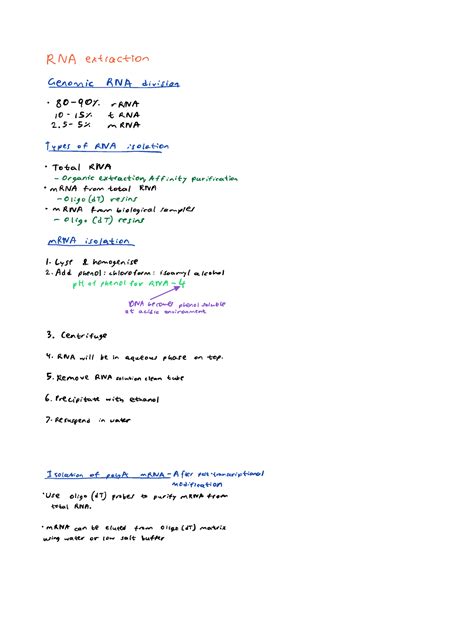 RNA extraction
Genomic RNA division
• 80-90% rRNA
10-15% tRNA
2.5-5% mRNA
Types of RNA isolation
• Total RNA
- Organic extraction, Affinity purification
• mRNA from total RNA
- Oligo (dT) resins
• mRNA from biological samples
- Oligo (dT) resins
mRNA isolation
1. Lyse & homogenise
2. Add phenol: chloroform: isoamyl alcohol
pH of phenol for RNA - 4
DNA becomes phenol soluble
at acidic environment
3. Centrifuge
4. RNA will be in aqueous phase on top.
5. Remove RNA solution clean tube
6. Precipitate with ethanol
7. Resuspend in water
Isolation of polyA mRNA - After post-transcriptional
modification
• Use oligo (dT) probes to purify mRNA from
total RNA.
• mRNA can be eluted from oligo (dT) matrix
using water or low salt buffer